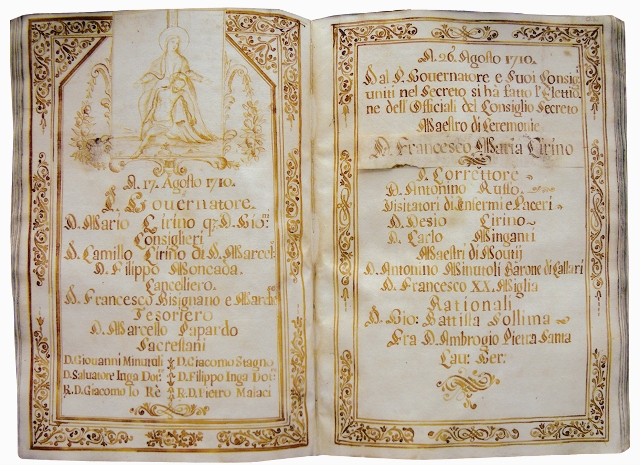 A. 17. Agosto 1710.
I. Gouernatore.
D. Mario Cirino q. D. Gio:
Consiglieri
D. Camillo Cirino di D. Marcel:
D. Filippo Moncada.
Cancelliero.
D. Francesco Bisignano e March:
Tesoriero
D. Marcello Papardo
Sacrestani
D. Giouanni Minutuli D. Giacomo Stagno
D. Saluatore Inga Dot: D. Filippo Inga Dot:
R. D. Giacomo lo Rè R. D. Pietro Malaci
A. 26. Agosto 1710.
Dal S. Gouernatore e Suoi Consig:
uniti nel Secreto si hà fatto l'Elettio
ne dell'Officiali del Consiglio Secreto
Maestro di Ceremonie
D. Francesco Maria Cirino
Correttore
D. Antonino Russo
Visitatori di Infermi e Carceri
D. Desio Cirino
D. Carlo Minganti
Maestri di Nouitij
D. Antonino Minutoli Barone di Callari
D. Francesco XX. Miglia
Rationali
D. Gio: Battista Follina
Fra D. Ambrogio Pietra Santa
Cau: Ger: